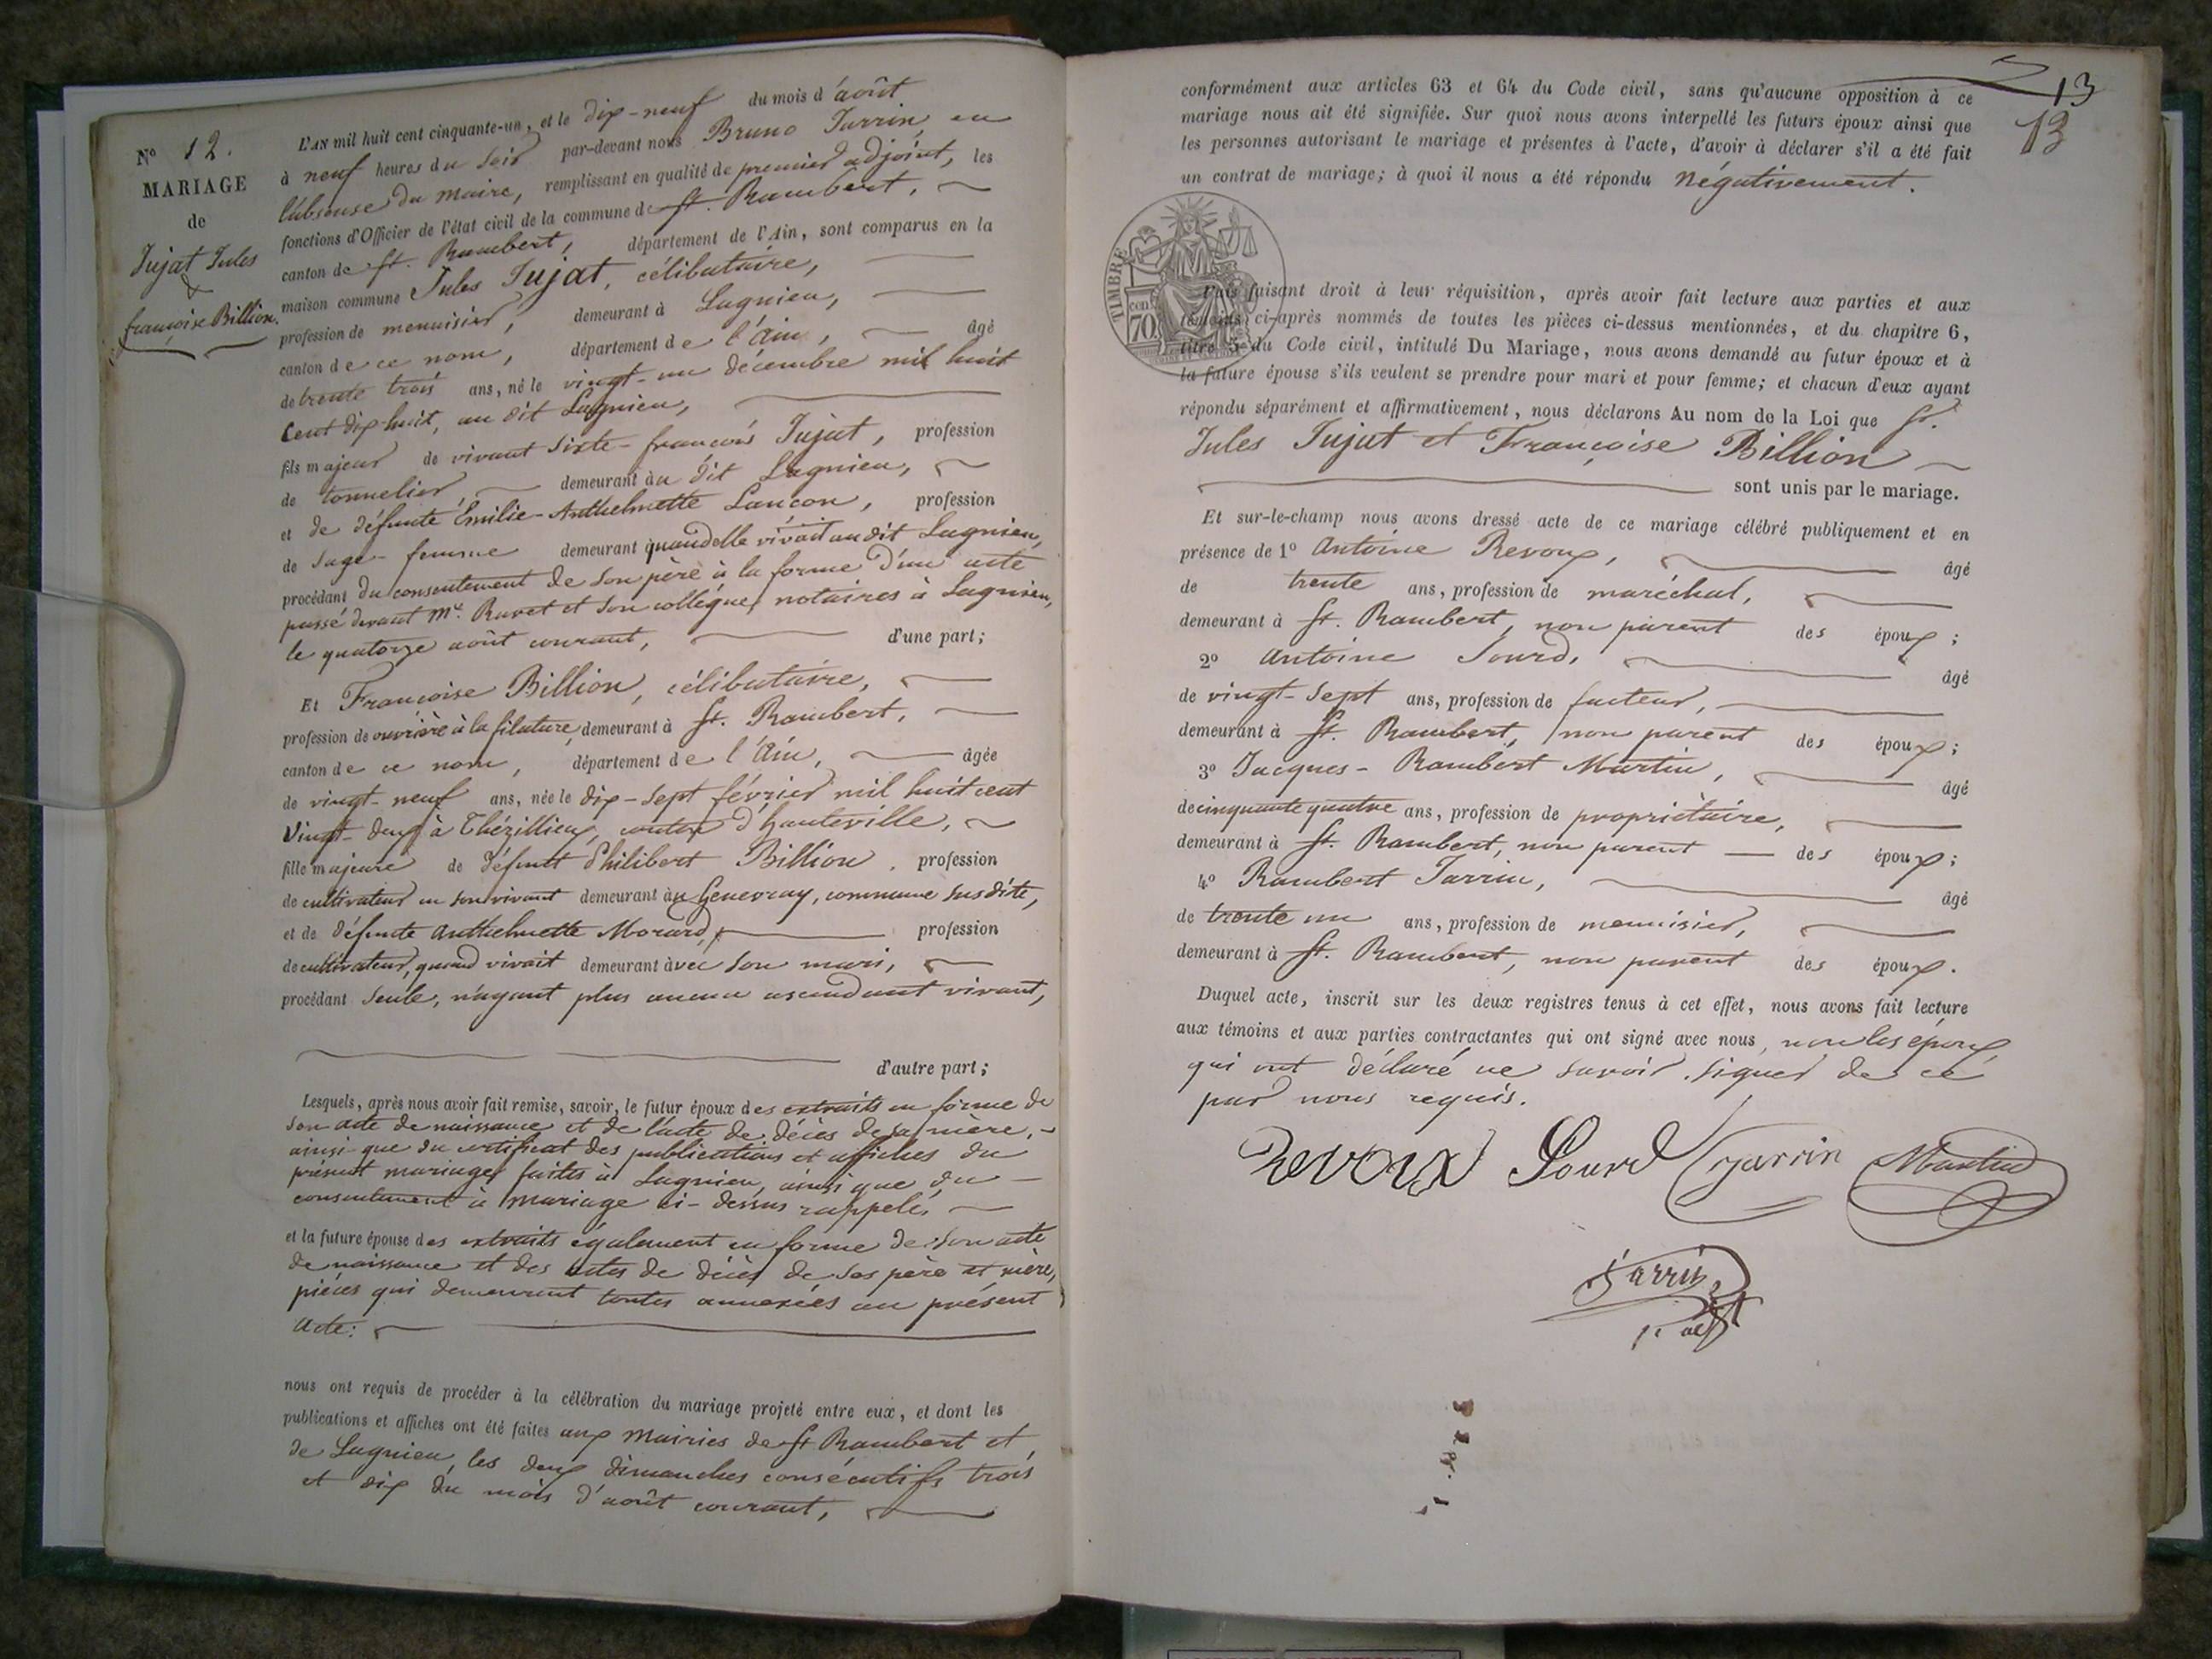 N° 12.
MARIAGE
de
Jujat Jules
&
françoise Billion.
L'AN mil huit cent cinquante-un, et le dix-neuf du mois d'août
à neuf heures du soir par-devant nous Bruno Jarrin, en
l'absense du maire, remplissant en qualité de premier adjoint, les
fonctions d'Officier de l'état civil de la commune de St. Rambert,
canton de St. Rambert, département de l'Ain, sont comparus en la
maison commune Jules Jujat, célibataire,
profession de menuisier, demeurant à Lagnieu,
canton de ce nom, département de l'Ain, âgé
de trente trois ans, né le vingt-un décembre mil huit
cent dix-huit, au dit Lagnieu,
fils majeur de vivant Sixte-françois Jujat, profession
de tonnelier, demeurant au dit Lagnieu,
et de défunte Émilie-Anthelmette Lançon, profession
de sage-femme demeurant quandelle vivait au dit Lagnieu,
procédant du consentement de son père à la forme d'un acte
passé devant Me. Ruvet et son collègue, notaires à Lagnieu,
le quatorze août courant, d'une part;
Et Françoise Billion, célibataire,
profession de ouvrière à la filature, demeurant à St. Rambert,
canton de ce nom, département de l'Ain, âgée
de vingt-neuf ans, née le dix-sept février mil huit cent
vingt-deux à Thézillieu, canton d'hauteville,
fille majeure de défunt Philibert Billion, profession
de cultivateur en son vivant demeurant au Genevray, commune susdite,
et de défunte anthelmette Morard, profession
de cultivateur, quand vivait demeurant avec son mari,
procédant seule, n'ayant plus aucun ascendant vivant,
d'autre part;
Lesquels, après nous avoir fait remise, savoir, le futur époux des extraits en forme de
son acte de naissance et de l'acte de décès de sa mère,
ainsi que du certificat des publications et affiches du
présent mariage, faites à Lagnieu, ainsi que du
consentement à mariage ci-dessus rappelé,
et la future épouse des extraits également en forme de son acte
de naissance et des actes de décès de ses père et mère,
pièces qui demeurent toutes annexées au présent
acte:
nous ont requis de procéder à la célébration du mariage projeté entre eux, et dont les
publications et affiches ont été faites aux Mairies de St Rambert et
de Lagnieu, les deux dimanches consécutifs trois
et dix du mois d'août courant,
13
13
conformément aux articles 63 et 64 du Code civil, sans qu'aucune opposition à ce
mariage nous ait été signifiée. Sur quoi nous avons interpellé les futurs époux ainsi que
les personnes autorisant le mariage et présentes à l'acte, d'avoir à déclarer s'il a été fait
un contrat de mariage; à quoi il nous a été répondu négativement.
TIMBRE
cen
70
Puis faisant droit à leur réquisition, après avoir fait lecture aux parties et aux
témoins ci-après nommés de toutes les pièces ci-dessus mentionnées, et du chapitre 6,
titre 5 du Code civil, intitulé Du Mariage, nous avons demandé au futur époux et à
la future épouse s'ils veulent se prendre pour mari et pour femme; et chacun d'eux ayant
répondu séparément et affirmativement, nous déclarons Au nom de la Loi que Sr.
Jules Jujat et Françoise Billion
sont unis par le mariage.
Et sur-le-champ nous avons dressé acte de ce mariage célébré publiquement et en
présence de 1° Antoine Revoux, âgé
de trente ans, profession de maréchal,
demeurant à St. Rambert, non parent des époux;
2° Antoine Sourd, âgé
de vingt-sept ans, profession de facteur,
demeurant à St. Rambert, non parent des époux;
3° Jacques-Rambert Martin, âgé
de cinquante quatre ans, profession de propriétaire,
demeurant à St. Rambert, non parent des époux;
4° Rambert Jarrin, âgé
de trente un ans, profession de menuisier,
demeurant à St. Rambert, non parent des époux.
Duquel acte, inscrit sur les deux registres tenus à cet effet, nous avons fait lecture
aux témoins et aux parties contractantes qui ont signé avec nous, non les époux,
qui ont déclaré ne savoir signer de ce
par nous requis.
Revoux Sourd Jarrin Martin
Jarrin
1er adjt